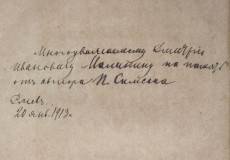 Многоуважаемому Дмитрію
Ивановичу Малинину на память
отъ автора П. Симсона
Ржевъ.
20 янв. 1913 г.